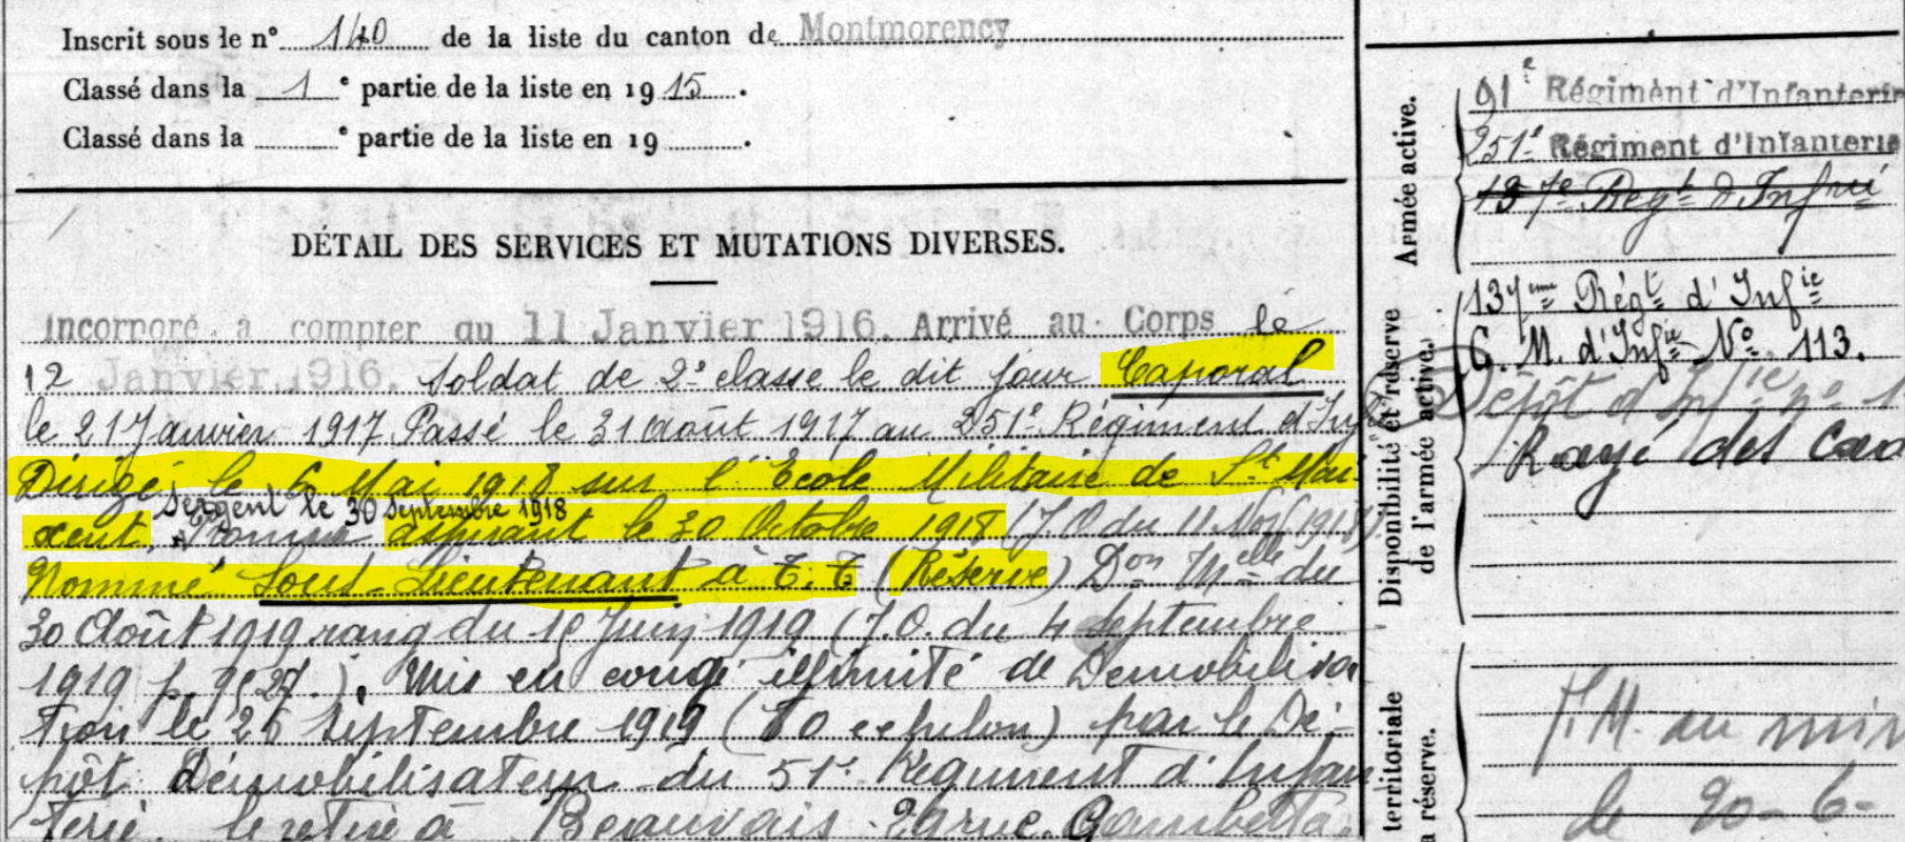 Inscrit sous le n° 140 de la liste du canton de Montmorency
Classé dans la 1 e partie de la liste en 1915.
Classé dans la e partie de la liste en 19 .
DÉTAIL DES SERVICES ET MUTATIONS DIVERSES.
Incorporé à compter du 11 Janvier 1916. Arrivé au Corps le
12 Janvier 1916. Soldat de 2e classe le dit jour Caporal
le 21 Janvier 1917 Passé le 31 août 1917 au 251e Régiment d'Inf
Dirigé le 6 Mai 1918 sur l'Ecole Militaire de St Mai-
Sergent le 30 Septembre 1918
xent. Promu aspirant le 30 Octobre 1918 (J.O du 11 Nov 1918)
Nommé Sous-Lieutenant à T.T (Réserve) Don Melle du
30 Août 1919 rang du Juin 1919 (J.O. du 4 Septembre
1919 p. ). Mis en congé illimité de Démobilisa
tion le 26 Septembre 1919 ( echelon) par le Dé-
pôt Démobilisateur du 51e Régiment d'Infan
terie. Se retire à Beauvais rue Gambetta.
Armée active.
91e Régiment d'Infanterie
251e Régiment d'Infanterie
137e Regt d'Infrie
Disponibilité et réserve de l'armée active.
137eme Régt d'Infie
C. M. d'Infie No 113.
Dépôt d'Infie no 1
Rayé des Cad
territoriale
a réserve.
F.M. au min
le 20-6-